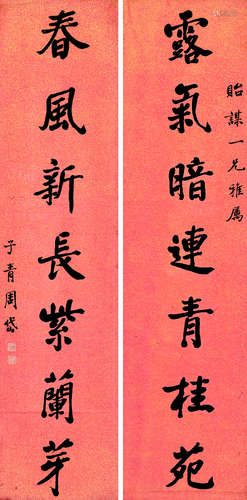 貽謀一兄雅屬
露氣暗連青桂苑
春風新長紫蘭芽
子青周岱